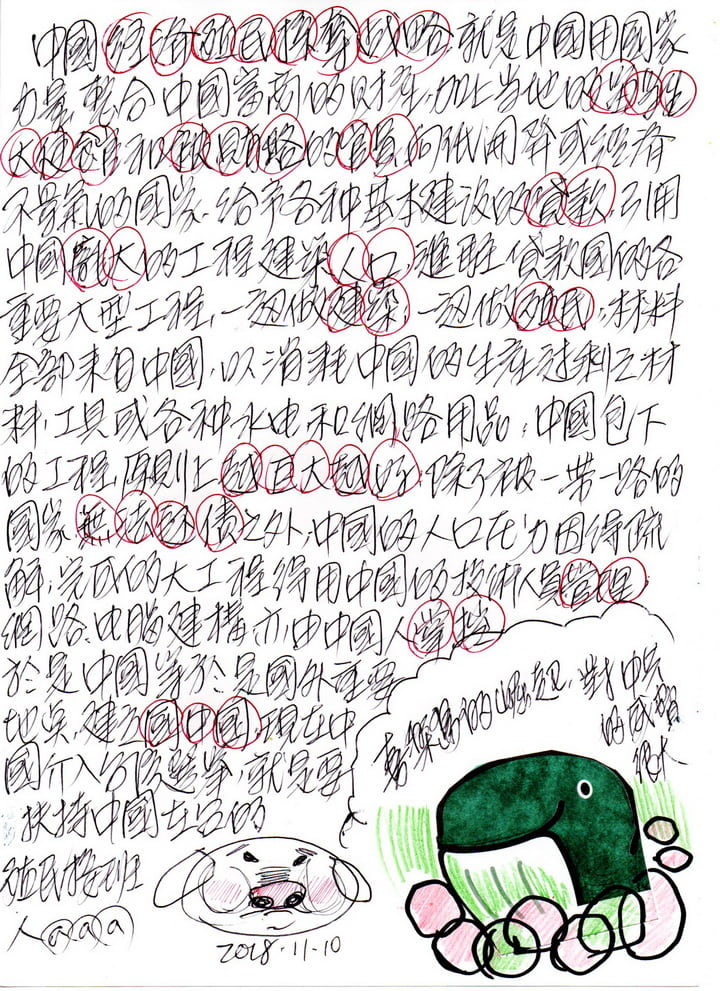 中國經濟殖民探奪戰略 就是中國用國家
力量 整合中國富商的財產，加上当地的
和 的官員 向低開發或經濟
不景氣的國家，給予各種基本建設的貸款，引用
中國龐大的工程建築人口，進駐貸款國的各
重要大型工程，一邊做建築，一邊做殖民，材料
全部來自中國，以消耗中國的生產過剩之材
料，工具或各種水电和網路用品，中國包下
的工程，原則上越巨大越好，除了被一帶一路的
國家無法还債之外，中國的人口压力因得疏
解，完成的大工程得用中國的技術人員管理，
網路、电腦建構亦由中國人掌控
於是中國等於是國外重要
地点，建立國中國，現在中
國介入台灣選舉，就是要
扶持中國在台的
殖民接班
人aaa
的崛起，對中共
的威脅
很大
2018.11.10